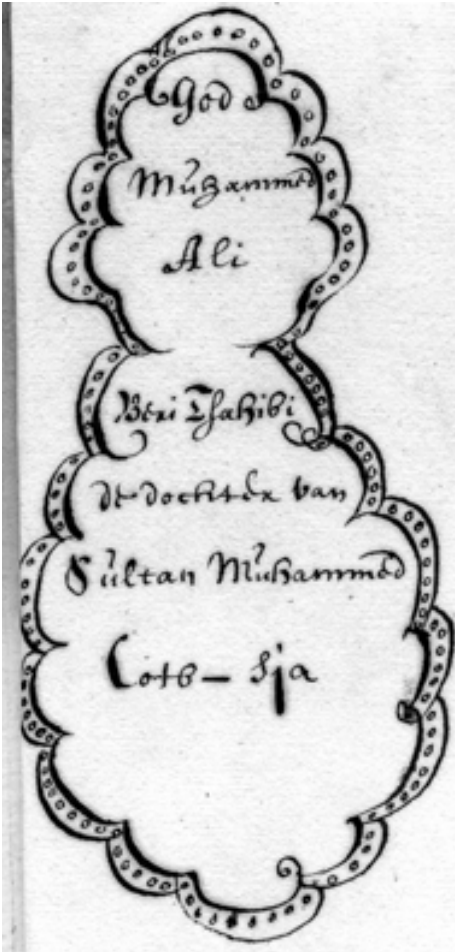 God
Muhammed
Ali
Beri Tsahibi
de dochter van
Sultan Muhammed
Cotb-Sja